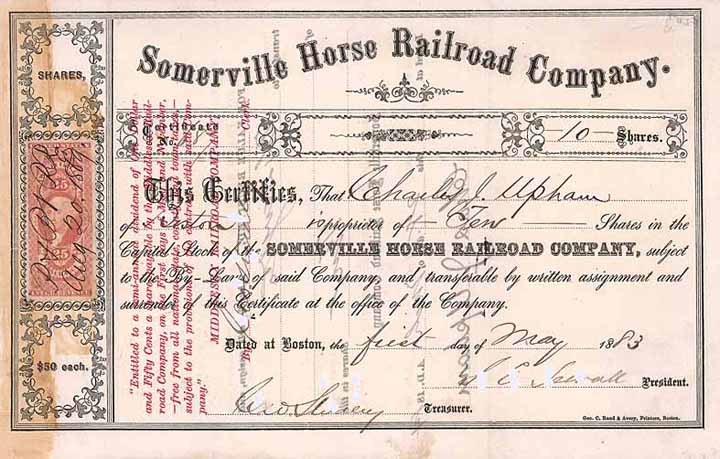 Somerville Horse Railroad Company.
SHARES,
Certificate
No.
10 Shares.
This Certifies, That Charles J. Upham
of Boston is proprietor of Ten Shares in the
Capital Stock of the SOMERVILLE HORSE RAILROAD COMPANY, subject
to the By-Laws of said Company, and transferable by written assignment and
surrender of this Certificate at the office of the Company.
Dated at Boston, the first day of May 1883
President.
Treasurer.
$50 each.
Geo. C. Rand & Avery, Printers, Boston.
"Entitled to a semi-annual dividend of One Dollar
and Fifty Cents a share, payable by the Middlesex Rail-
road Company, on the First days of May and November,
—free from all national, state, county and town taxes,—
subject to the provisions of the contract with said Com-
pany."
MIDDLESEX RAILROAD COMPANY
By
Clerk.
25
25
Aug 20. 1889